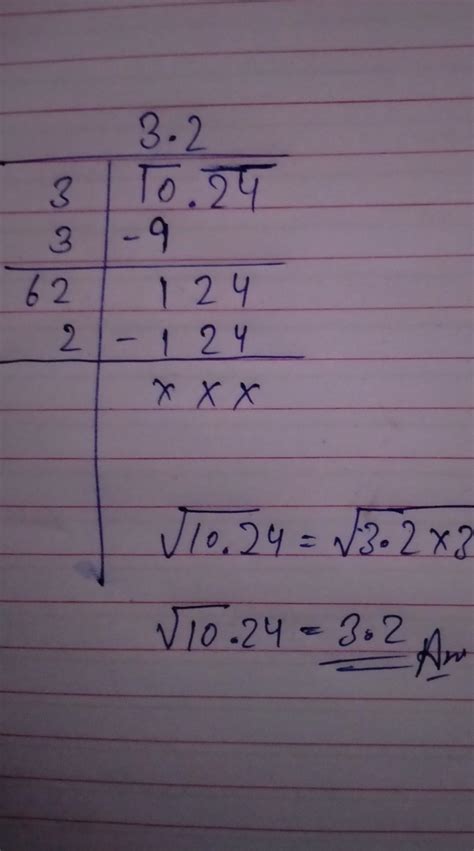 3.2
3 10.24
3 -9
62 124
2 -124
x x x
√10.24 = √3.2×3
√10.24 = 3.2 Ans